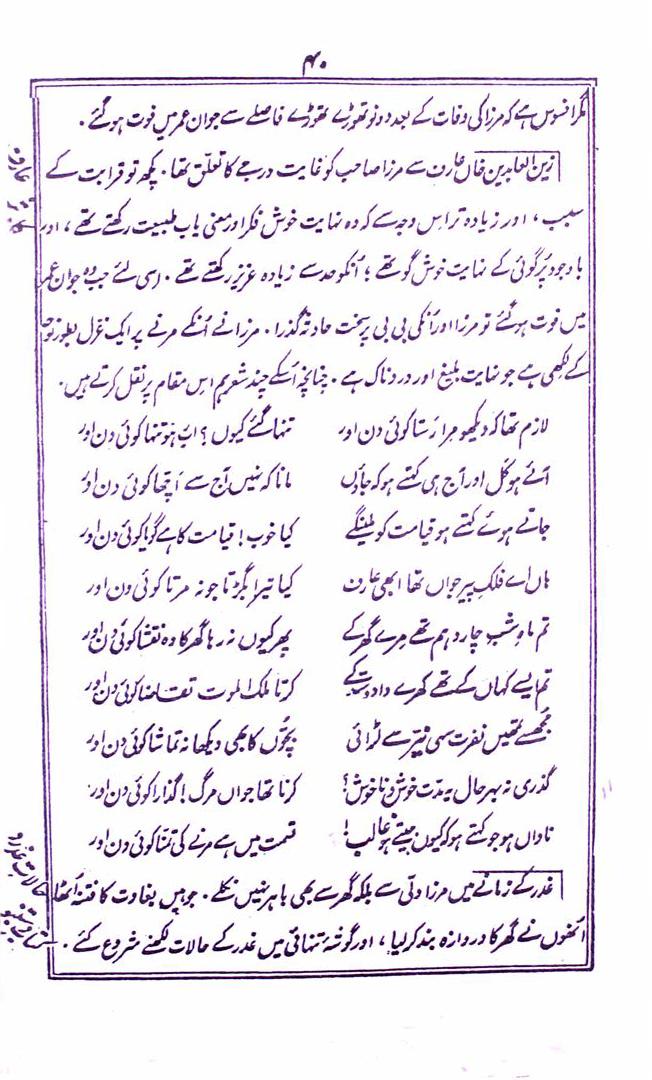 ۴۰
مگر افسوس ہے کہ مرزا کی وفات کے بعد دونو تھوڑے تھوڑے فاصلے سے جوان عمر میں فوت ہوگئے۔
زین العابدین خاں عارف سے مرزا صاحب کو غایت درجے کا تعلق تھا۔ کچھ تو قرابت کے
سبب، اور زیادہ تر اس وجہ سے کہ وہ نہایت خوش فکر اور معنی یاب طبیعت رکھتے تھے، اور
باوجود پُرگوئی کے نہایت خوش گو تھے؛ اُنکو حد سے زیادہ عزیز رکھتے تھے۔ اسی لئے جب وہ جوان عمر
میں فوت ہوگئے تو مرزا اور اُنکی بی بی پر سخت حادثہ گذرا۔ مرزا نے اُنکے مرنے پر ایک غزل بطور نوحہ
کے لکھی ہے جو نہایت بلیغ اور دردناک ہے۔ چنانچہ اُسکے چند شعر ہم اس مقام پر نقل کرتے ہیں۔
لازم تھا کہ دیکھو مرا رستا کوئی دن اور تنہا گئے کیوں؟ اب رہو تنہا کوئی دن اور
آئے ہو کل اور آج ہی کہتے ہو کہ جاؤں مانا کہ نہیں آج سے اچھا کوئی دن اور
جاتے ہوئے کہتے ہو قیامت کو ملینگے کیا خوب! قیامت کا ہے گویا کوئی دن اور
ہاں اے فلکِ پیر جواں تھا ابھی عارف کیا تیرا بگڑتا جو نہ مرتا کوئی دن اور
تم ماہِ شبِ چاردہم تھے مرے گھر کے پھر کیوں نہ رہا گھر کا وہ نقشا کوئی دن اور
تم ایسے کہاں کے تھے کھرے دادوستد کے کرتا ملک الموت تقاضا کوئی دن اور
مجھسے تمھیں نفرت سہی نیّر سے لڑائی بچّوں کا بھی دیکھا نہ تماشا کوئی دن اور
گذری نہ بہر حال یہ مدّت خوش و ناخوش؟ کرنا تھا جواں مرگ! گذارا کوئی دن اور
ناداں ہو جو کہتے ہو کہ کیوں جیتے ہو غالب! قسمت میں ہے مرنے کی تمنّا کوئی دن اور
غدر کے زمانے میں مرزا دلّی سے بلکہ گھر سے بھی باہر نہیں نکلے۔ جوہیں بغاوت کا فتنہ اُٹھا
اُنھوں نے گھر کا دروازہ بند کر لیا، اور گوشۂ تنہائی میں غدر کے حالات لکھنے شروع کئے۔
حالات غدر